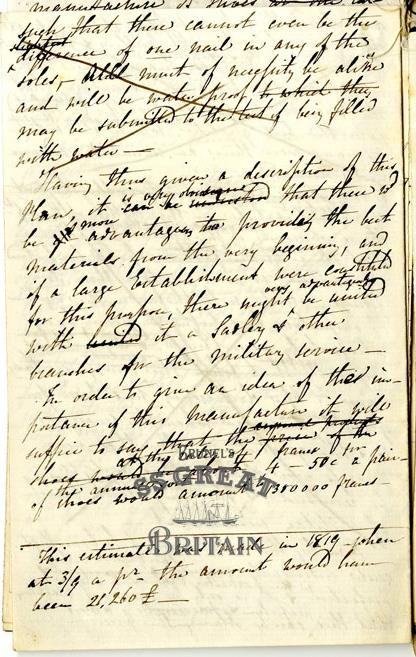 manufacture of shoes
such that there cannot even be the
slightest
difference of one nail in any of the
soles, All must of necessity be alike
and will be water proof to which they
may be submitted to the test of being filled
with water —
Having thus given a description of this
Plan, it is very obvious that there wd
be advantages providing the best
materials from the very beginning, and
if a large Establishment were constituted
for this purpose, there might be united
with it a Sadlery & other
branches for the military service —
In order to give an idea of the im-
portance of this manufacture it will
suffice to say that the
shoes at francs
the annual 50c a pair
of shoes would amount francs
BRUNEL'S
SS GREAT
BRITAIN
This estimate was made in 1819 when
at 3/9 a pr the amount would have
been 21,260 £ —